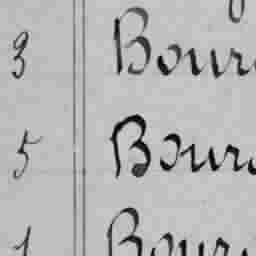 3 Bour
5 Bour
1 Bour